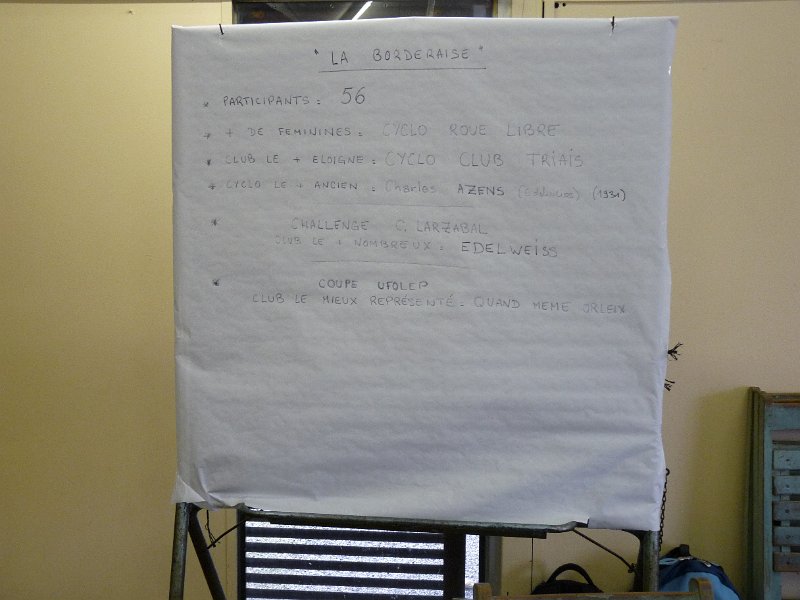 " LA BORDERAISE "
* PARTICIPANTS : 56
* + DE FEMININES : CYCLO ROUE LIBRE
* CLUB LE + ELOIGNE : CYCLO CLUB TRIAIS
* CYCLO LE + ANCIEN : Charles AZENS (1931)
* CHALLENGE C. LARZABAL
CLUB LE + NOMBREUX : EDELWEISS
* COUPE UFOLEP
CLUB LE MIEUX REPRÉSENTÉ : QUAND MEME ORLEIX